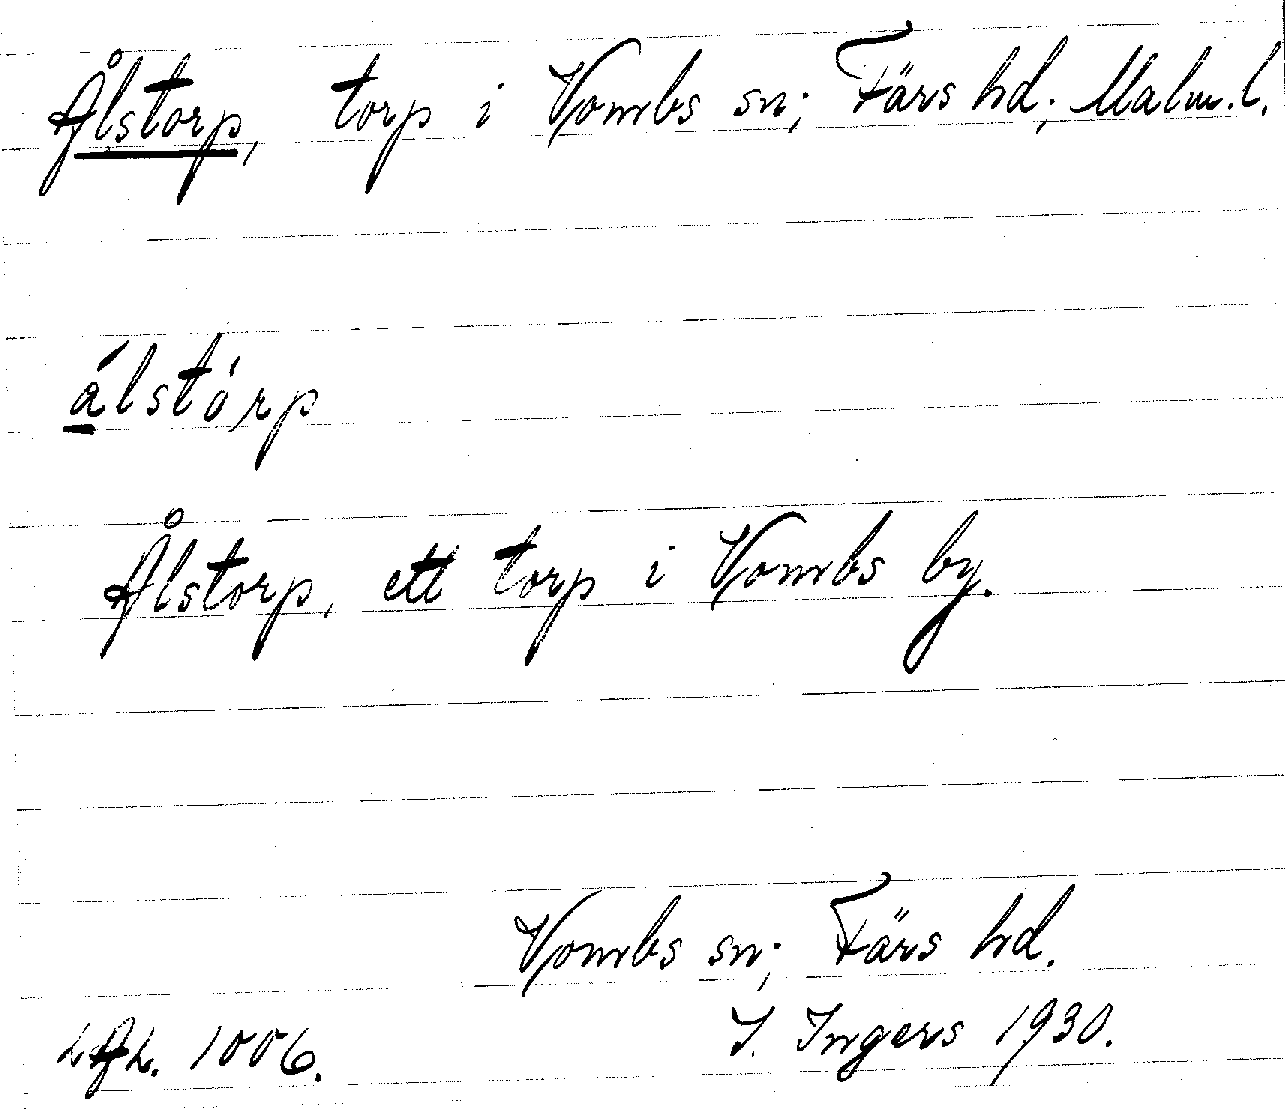 Ålstorp, torp i Vombs sn; Färs hd; Malm. l.
álstórp
Ålstorp, ett torp i Vombs by.
Vombs sn; Färs hd.
LAL. 1006. I. Ingers 1930.